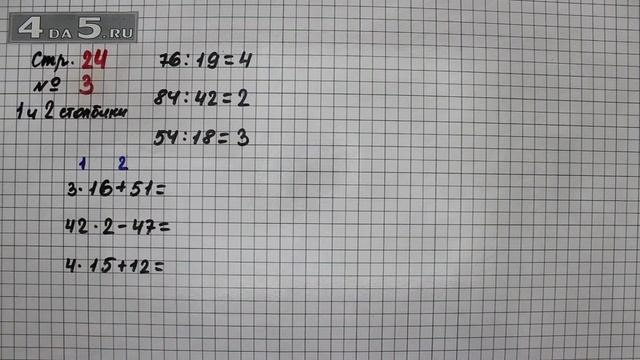 4 DA 5.RU
Стр. 24
№ 3
1 и 2 столбики
76 : 19 = 4
84 : 42 = 2
54 : 18 = 3
1 2
3 · 16 + 51 =
42 · 2 - 47 =
4 · 15 + 12 =